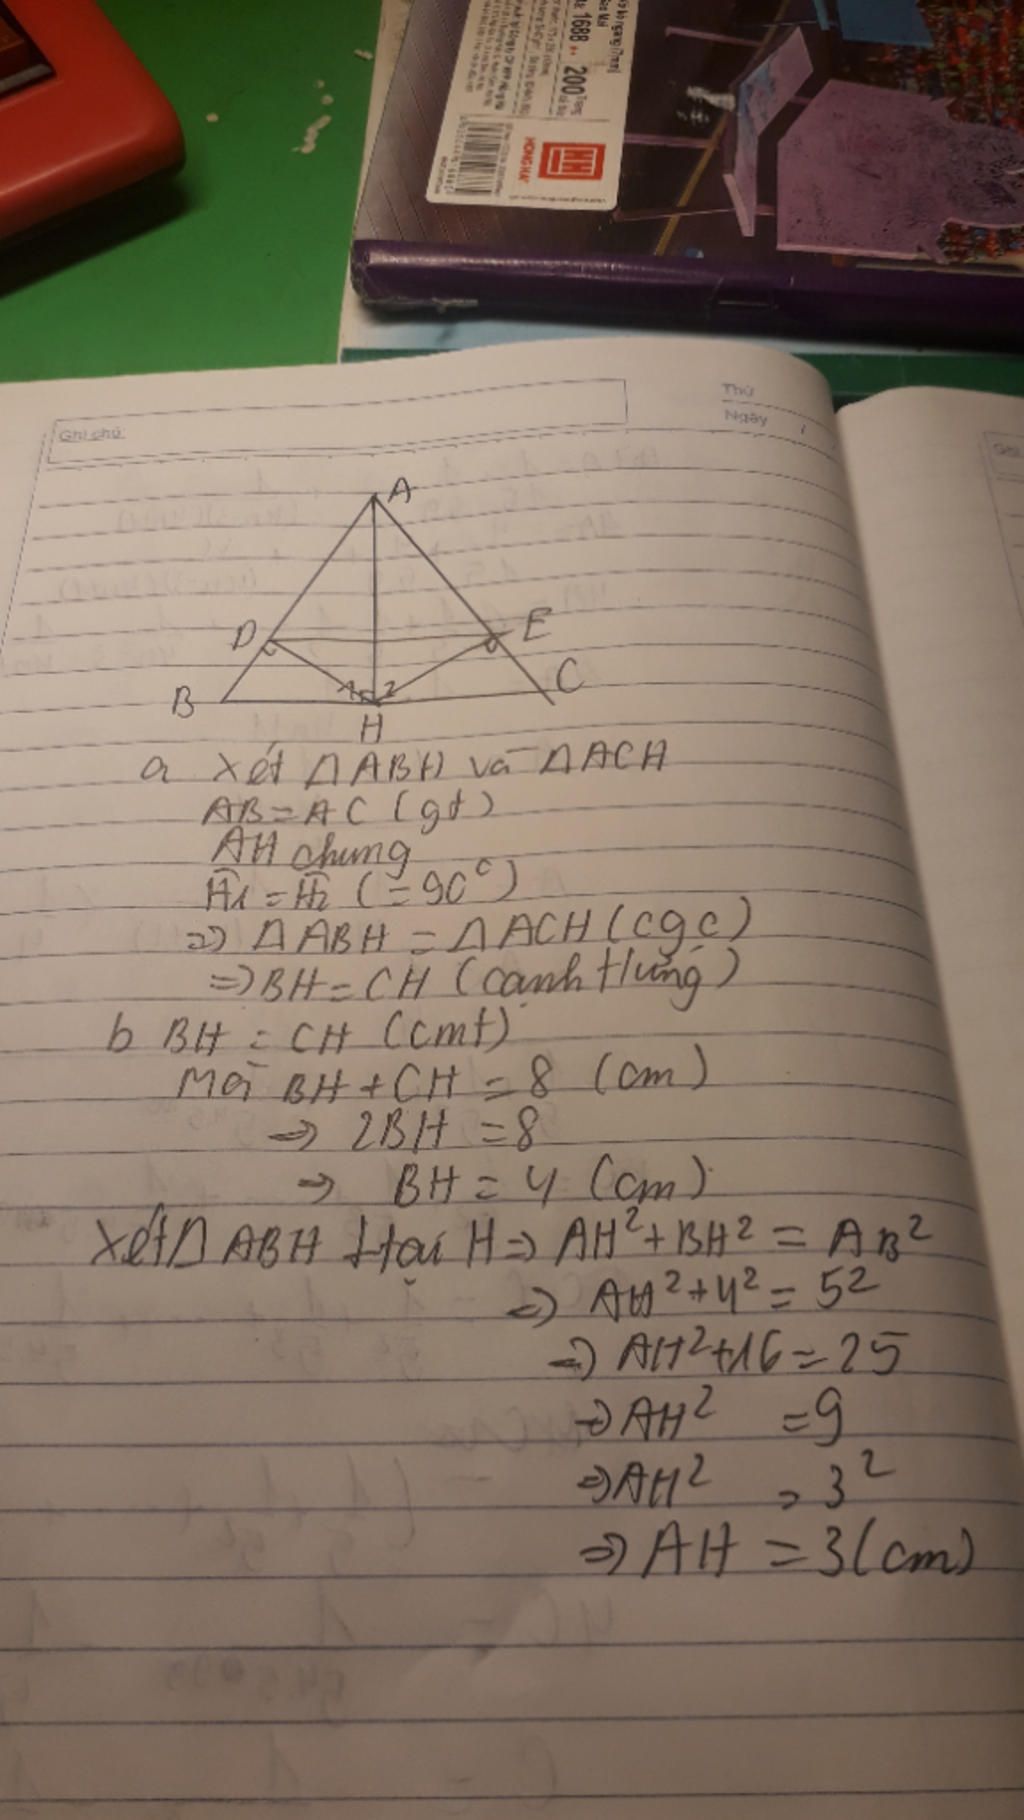 1688
200
HONG HA
Ghi chú:
Thứ
Ngày /
A
D
E
B
C
1 2
H
a xét ΔABH và ΔACH
AB = AC (gt)
AH chung
Ĥ1 = Ĥ2 (= 90°)
=> ΔABH = ΔACH (cgc)
=> BH = CH (cạnh t/ứng)
b BH = CH (cmt)
Mà BH + CH = 8 (cm)
=> 2BH = 8
=> BH = 4 (cm)
Xét Δ ABH ⊥ tại H => AH² + BH² = AB²
=> AH² + 4² = 5²
=> AH² + 16 = 25
=> AH² = 9
=> AH² = 3²
=> AH = 3 (cm)